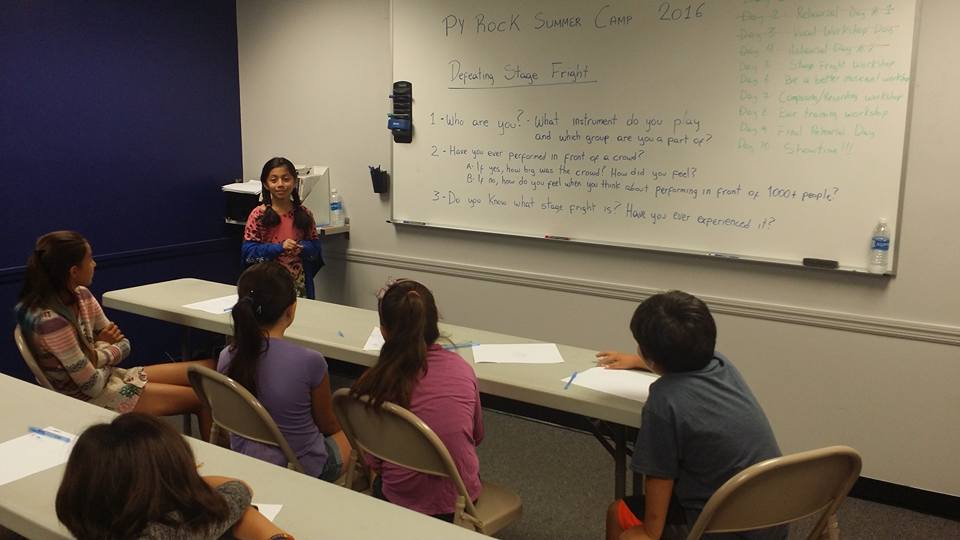 PY ROCK SUMMER CAMP 2016
Defeating Stage Fright
1 - Who are you? - What instrument do you play
and which group are you a part of?
2 - Have you ever performed in front of a crowd?
A: If yes, how big was the crowd? How did you feel?
B: If no, how do you feel when you think about performing in front of 1000+ people?
3 - Do you know what stage fright is? Have you ever experienced it?
Day 2 - Rehearsal Day #1
Day 3 - Vocal Workshop Day
Day 4 - Rehearsal Day #2
Day 5 - Stage Fright Workshop
Day 6 Be a better musician workshop
Day 7 Composing/Recording workshop
Day 8 Ear training workshop
Day 9 Final Rehearsal Day
Day 10 Showtime!!!